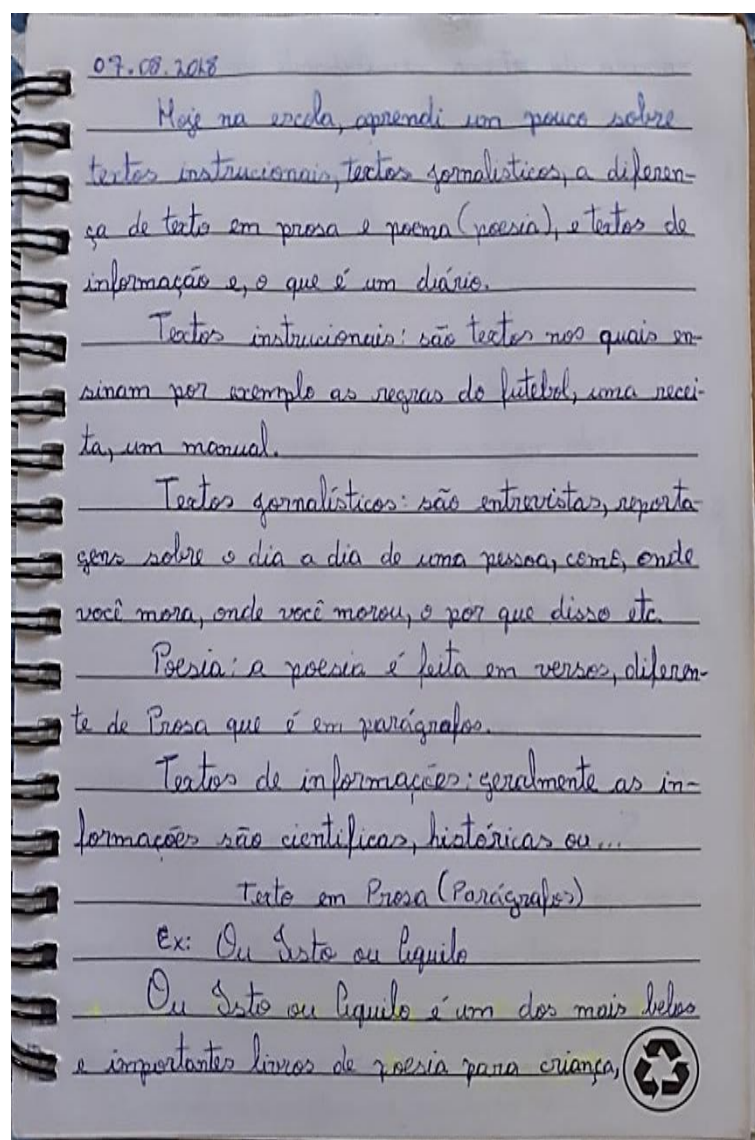 07.08.2018
Hoje na escola, aprendi um pouco sobre
textos instrucionais, textos jornalisticos, a diferen-
ça de texto em prosa e poema (poesia), e textos de
informação e, o que é um diário.
Textos instrucionais: são textos nos quais en-
sinam por exemplo as regras do futebol, uma recei-
ta, um manual.
Textos jornalísticos: são entrevistas, reporta-
gens sobre o dia a dia de uma pessoa, como, onde
você mora, onde você morou, o por que disso etc.
Poesia: a poesia é feita em versos, diferen-
te de Prosa que é em parágrafos.
Textos de informações: geralmente as in-
formações são cientificas, históricas ou...
Texto em Prosa (Parágrafos)
Ex: Ou Isto ou Aquilo
Ou Isto ou Aquilo é um dos mais belos
e importantes livros de poesia para criança,